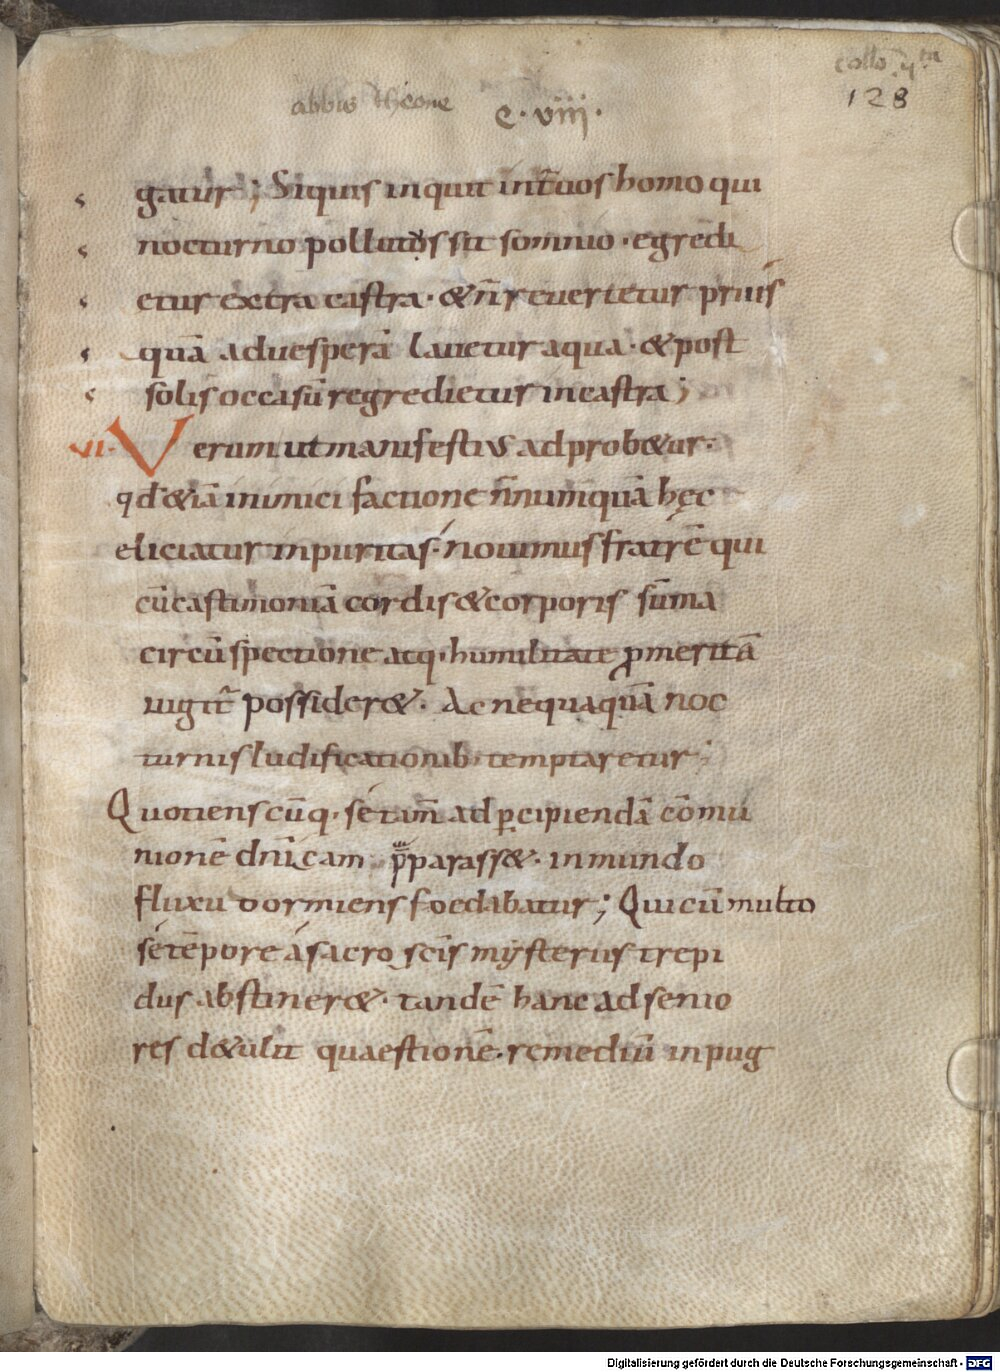 collō 4ta
128
abbis theone c · viii ·
gatur ; Siquis inquit int̄ uos homo qui
nocturno pollutus sit somnio · egredi
etur extra castra · & n̄ reuertetur prius
quā aduesperā lauetur aqua · & post
solis occasū regredietur incastra ;
VI · Uerum ut manifestius adprob&ur ·
qd &iā inimici factione n̄numquā hęc
eliciatur inpuritas · nouimus fratrē qui
cū castimoniā cordis & corporis sūma
circūspectione atq · humilitate ꝓmeritā
iugit̄ possider& · Ac nequaquā noc
turnis ludificationib · temptaretur ;
Quotienscūq · se tam̄ ad ꝑcipiendā cōmu
nionē dn̄icam p̄parass& · inmundo
fluxu dormiens foedabatur ; Qui cū multo
se tēpore a sacro sc̄is mysteriis trepi
dus abstiner& · tandē hanc ad senio
res d&ulit quaestionē · remediū inpug
Digitalisierung gefördert durch die Deutsche Forschungsgemeinschaft - DFG